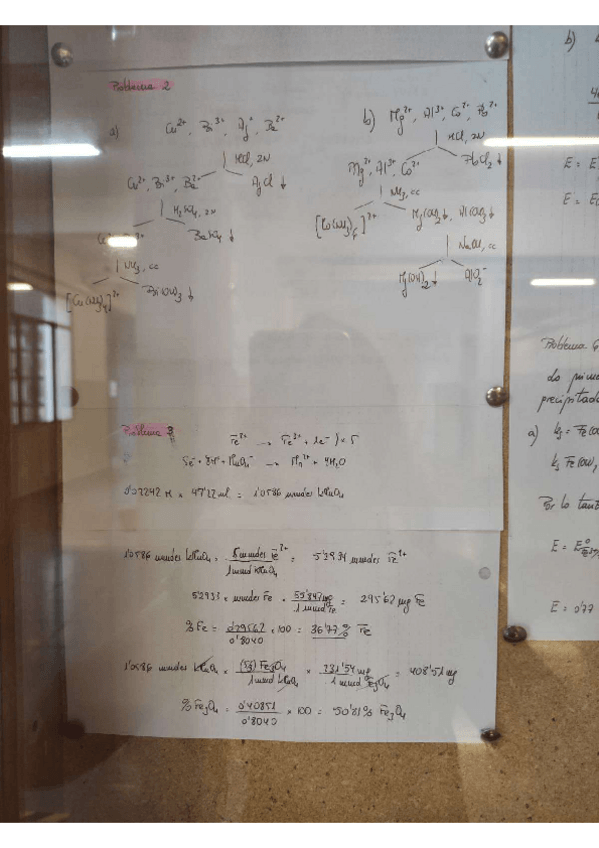 Problema 2
a) Cu²⁺, Bi³⁺, Ag⁺, Ba²⁺
HCl, 2N
Cu²⁺, Bi³⁺, Ba²⁺ AgCl ↓
H₂SO₄, 2N
BaSO₄ ↓
NH₃, cc
[Cu(NH₃)₄]²⁺ Bi(OH)₃ ↓
b) Mg²⁺, Al³⁺, Co²⁺, Pb²⁺
HCl, 2N
Mg²⁺, Al³⁺, Co²⁺ PbCl₂ ↓
NH₃, cc
[Co(NH₃)₆]²⁺ Mg(OH)₂ ↓, Al(OH)₃ ↓
NaOH, cc
Mg(OH)₂ ↓ AlO₂⁻
Problema 3
Fe²⁺ → Fe³⁺ + 1e⁻ ) × 5
5e⁻ + 8H⁺ + MnO₄⁻ → Mn²⁺ + 4H₂O
0'02242 M × 47'22 ml = 1'0586 mmoles KMnO₄
1'0586 mmoles KMnO₄ × 5 mmoles Fe²⁺ / 1 mmol KMnO₄ = 5'2934 mmoles Fe²⁺
5'2933 × mmoles Fe × 55'847 mg / 1 mmol Fe = 295'62 mg Fe
% Fe = 0'29562 / 0'8040 × 100 = 36'77 % Fe
1'0586 mmoles KMnO₄ × (5/3) Fe₃O₄ / 1 mmol KMnO₄ × 231'54 mg / 1 mmol Fe₃O₄ = 408'51 mg
% Fe₃O₄ = 0'40851 / 0'8040 × 100 = 50'81 % Fe₃O₄
b)
E =
E =
Problema
Lo prim
precipitad
a) ks = Fe(OH)
ks Fe(OH)₂
Por lo tant
E = E⁰
E = 0'77